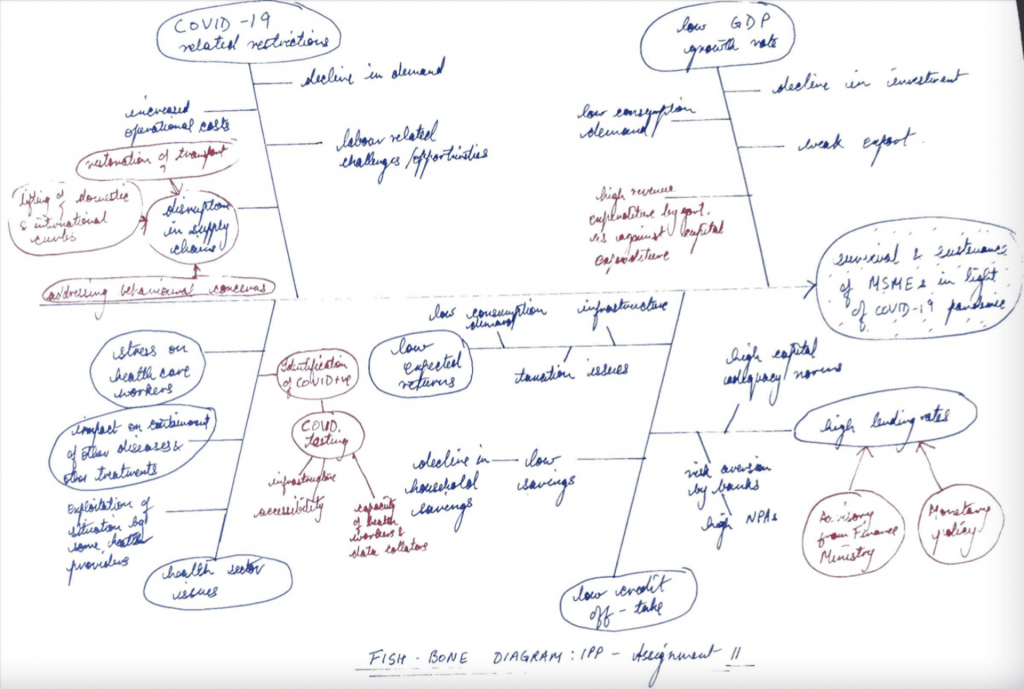 COVID-19
related restrictions
decline in demand
increased
operational costs
labour related
challenges/opportunities
restoration of transport
lifting of domestic
& international
curbs
disruption
in supply
chains
addressing behavioural concerns
low GDP
growth rate
decline in investment
low consumption
demand
weak export
high revenue
expenditure by govt.
as against capital
expenditure
survival & sustenance
of MSMEs in light
of COVID-19 pandemic
stress on
health care
workers
impact on containment
of other diseases &
other treatments
exploitation of
situation by
some health
providers
health sector
issues
Identification
of COVID+ve
COVID
testing
infrastructure
accessibility
capacity
of health
workers &
data collators
low consumption
demand
infrastructure
low
expected
returns
taxation issues
high capital
adequacy/norms
high lending rates
decline in
household
savings
low
savings
risk aversion
by banks
high NPAs
Advisory
from Finance
Ministry
Monetary
policy
low credit
off-take
FISH-BONE DIAGRAM: IPP - Assignment II